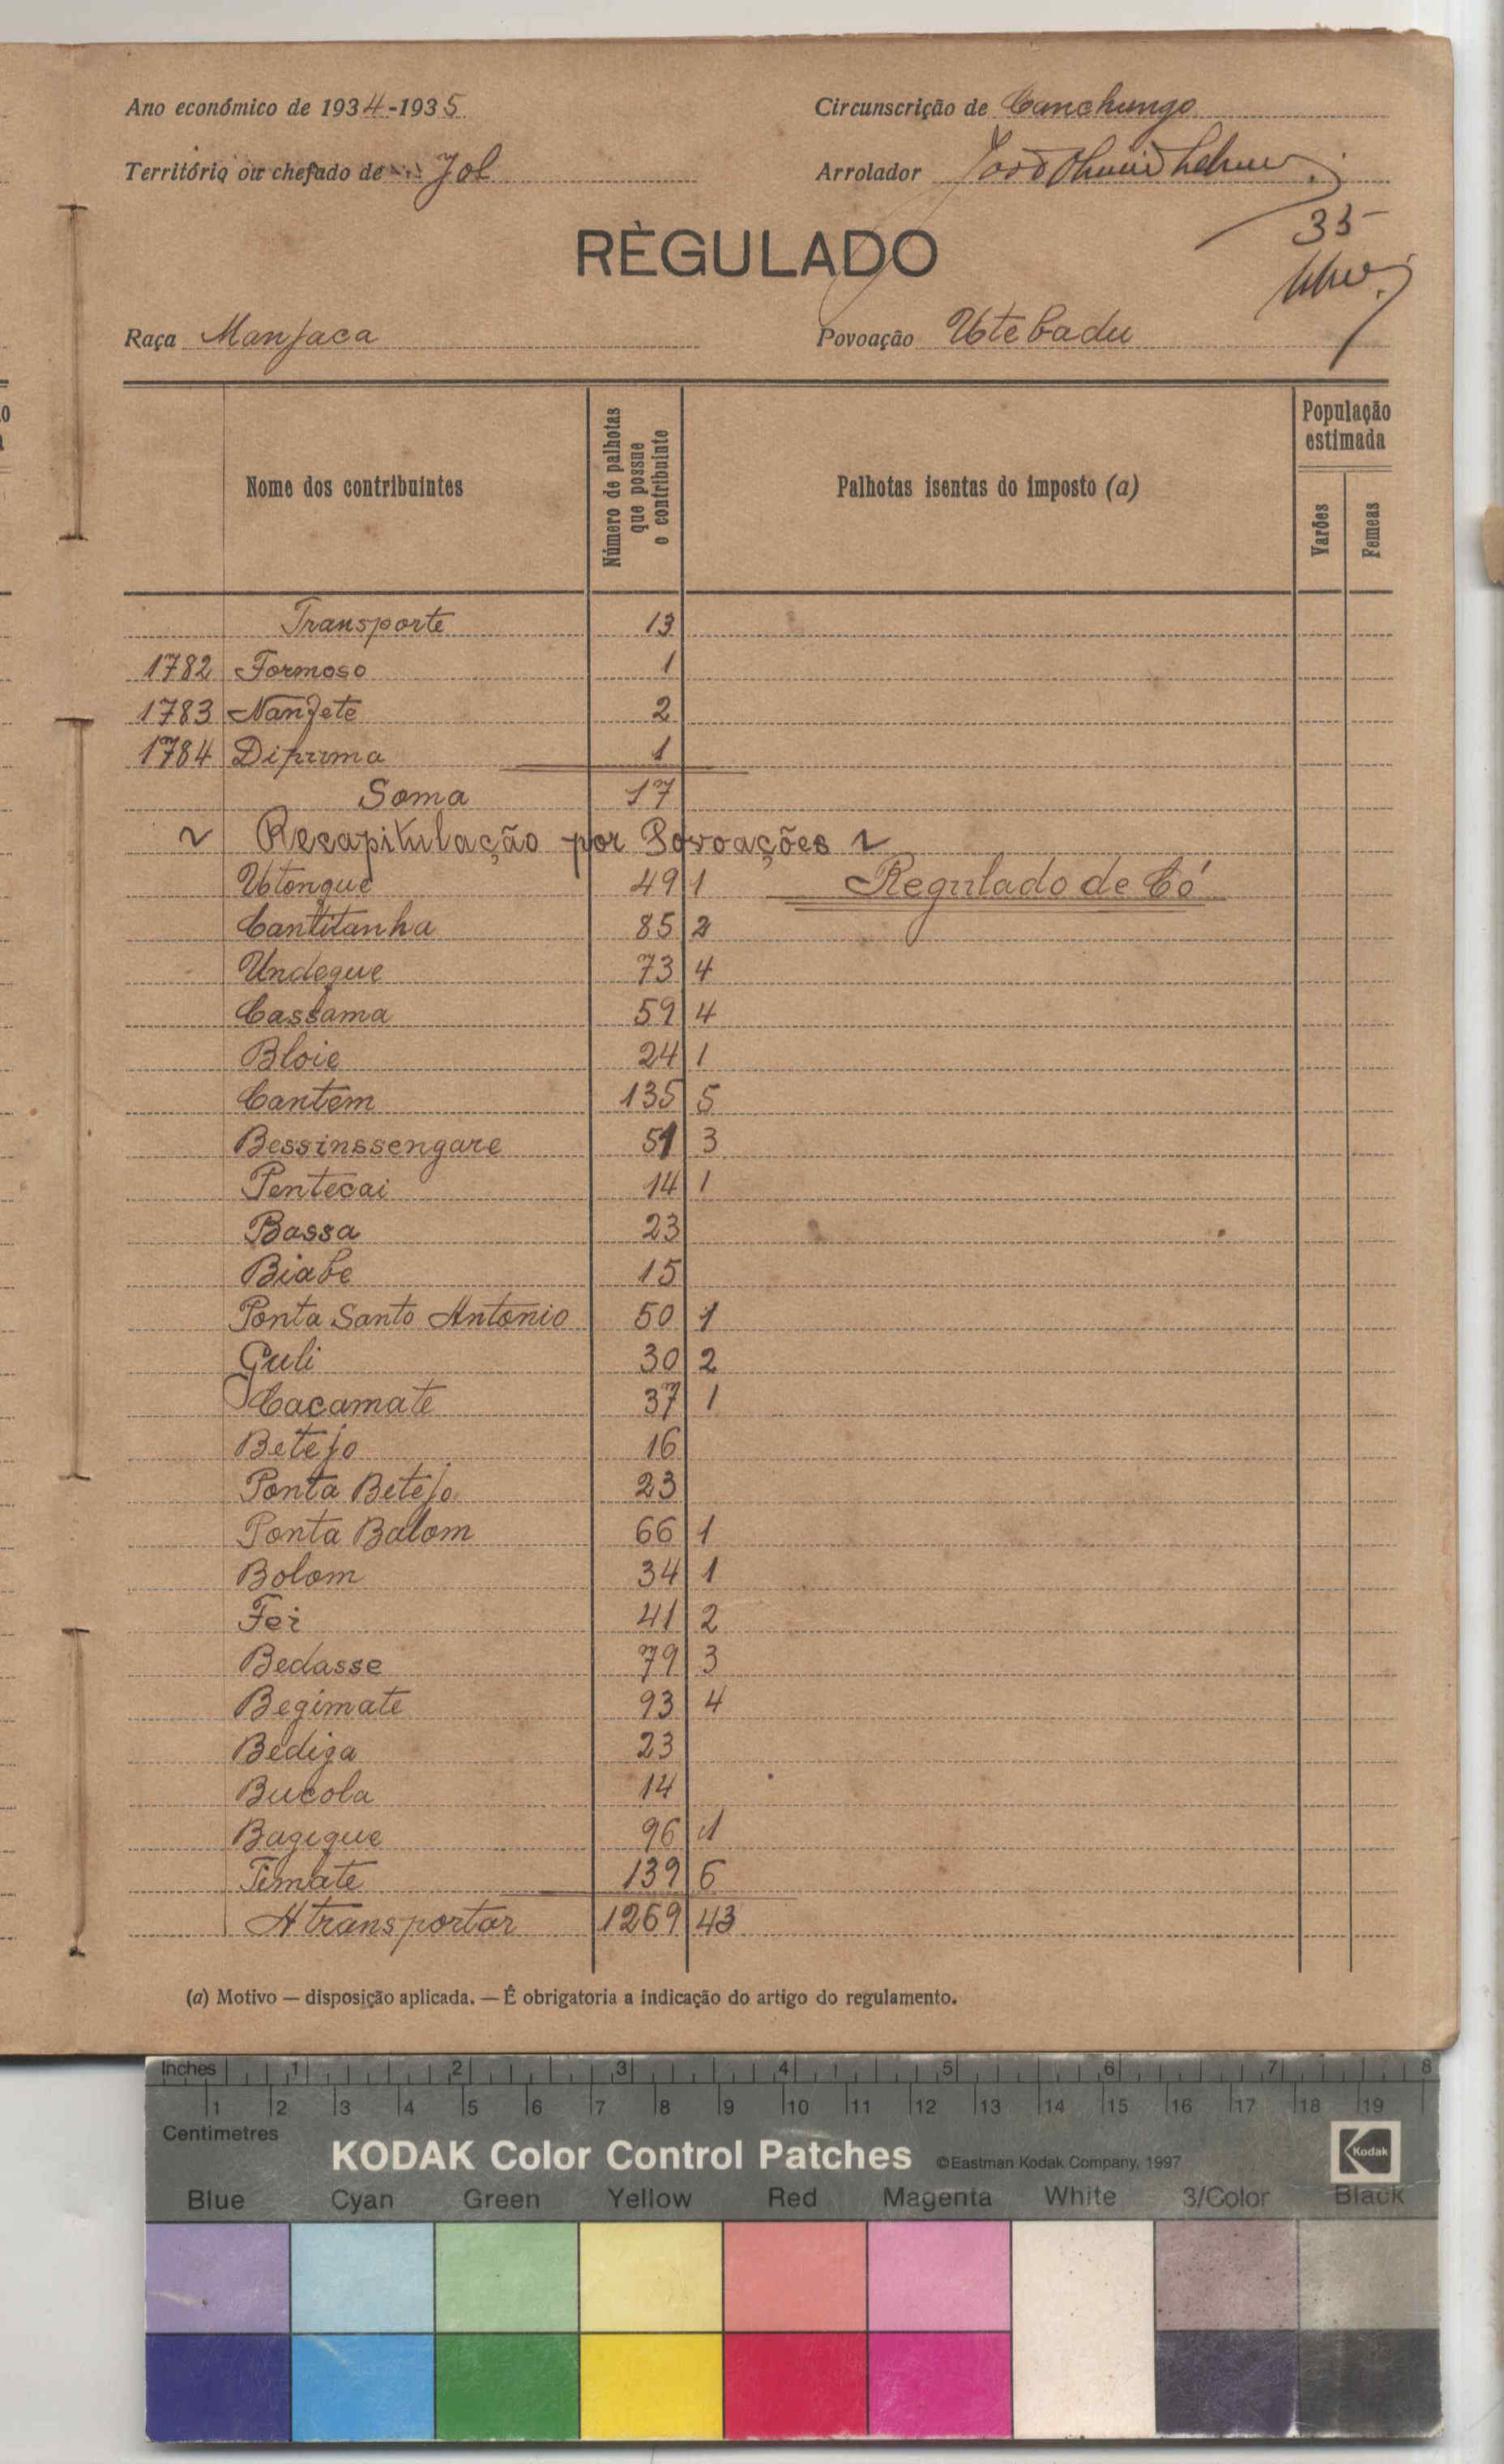 Ano económico de 1934-1935
Circunscrição de Canchungo
Território ou chefado de Jol
Arrolador
35
RÈGULADO
Raça Manjaca
Povoação Utebadu
Nome dos contribuintes
Número de palhotas que possue o contribuinte
Palhotas isentas do imposto (a)
População estimada
Varões
Femeas
Transporte 13
1782 Formoso 1
1783 Nanjete 2
1784 Dipuma 1
Soma 17
Recapitulação por Povoações
Utongue 49 1 Regulado de Có
Cantitanha 85 2
Undegue 73 4
Cassama 59 4
Bloie 24 1
Cantem 135 5
Bessinssengare 51 3
Pentecai 14 1
Bassa 23
Biabe 15
Ponta Santo Antonio 50 1
Guli 30 2
Cacamate 37 1
Betejo 16
Ponta Betejo 23
Ponta Balom 66 1
Bolom 34 1
Fei 41 2
Bedasse 79 3
Begimate 93 4
Bediga 23
Bucola 14
Bagigue 96 1
Timate 139 6
A transportar 1269 43
(a) Motivo — disposição aplicada. — É obrigatoria a indicação do artigo do regulamento.
Inches 1 2 3 4 5 6 7 8
1 2 3 4 5 6 7 8 9 10 11 12 13 14 15 16 17 18 19
Centimetres
KODAK Color Control Patches ©Eastman Kodak Company, 1997 Kodak
Blue Cyan Green Yellow Red Magenta White 3/Color Black